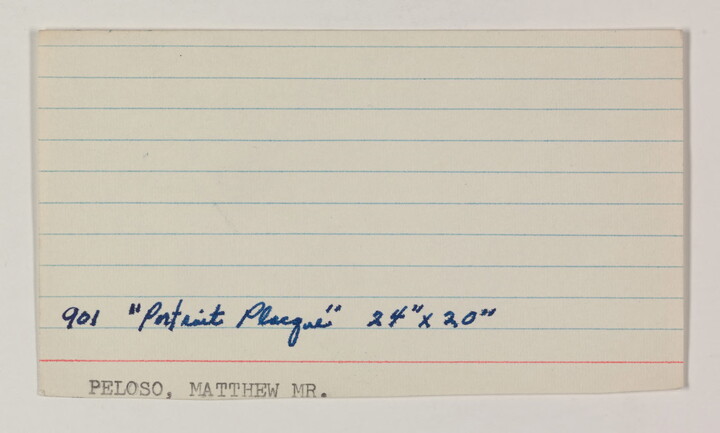 901 "Portrait Placque" 24" x 20"
PELOSO, MATTHEW MR.